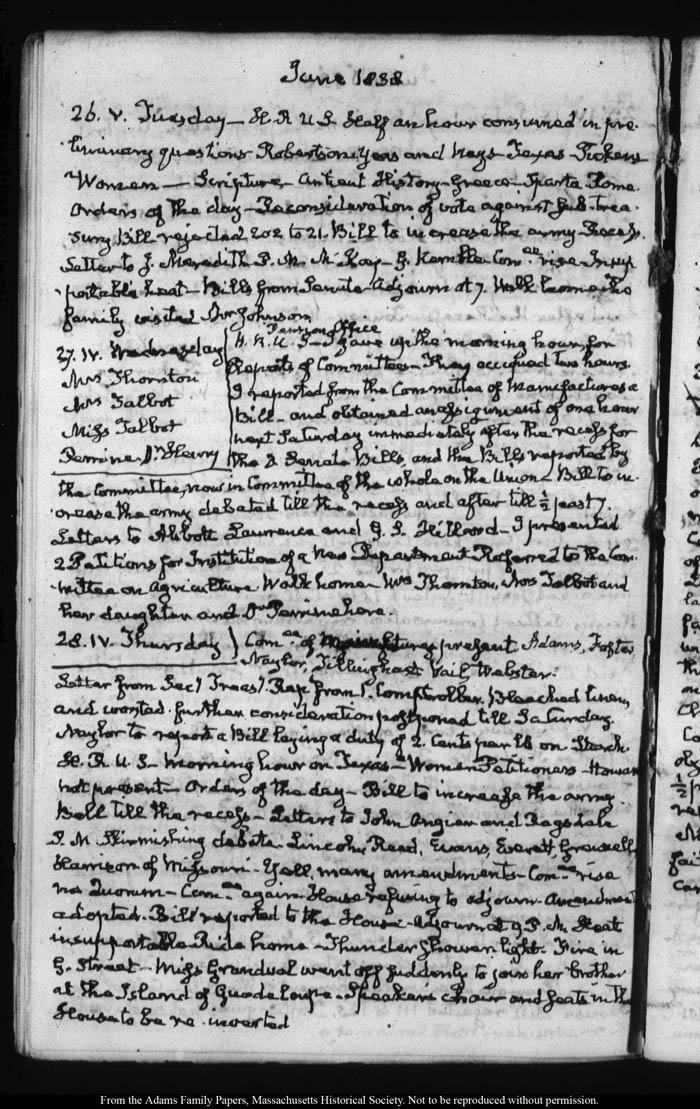 June 1838
26. V. Tuesday — H. R. U S Half an hour consumed in pre-
liminary questions Robertson. Yeas and Nays - Texas - Pickens
Women — Scripture - antient History - Greece - Sparta Rome.
Orders of the day - Reconsideration of vote against Sub. trea-
sury Bill rejected 202 to 21. Bill to increase the army - Recess.
Letter to J. Meredith P. M. M Kay - G. Kemble Com.ee rise Insup-
portable heat - Bills from Senate - Adjourn at 7. Walk home
family visited Johnson
Pension Office
27. IV. Wednesday
Mrs Thornton
Mrs Talbot
Miss Talbot
Perrine. Dr Henry
H. R. U. S - I gave up the morning hour, for
Reports of Committees - They occupied two hours.
I reported from the Committee of Manufactures a
Bill - and obtained an assignment of one hour
next Saturday immediately after the recess for
the 2 Senate Bills, and the Bills reported by
the Committee, now in Committee of the whole on the Union - Bill to in-
crease the army debated till the recess and after till ½ past 7.
Letters to Abbott Lawrence and G. S. Hillard - I presented
2 Petitions for Institution of a new Department Referred to the Com-
mittee on Agriculture. Walk home - Mrs Thornton, Mrs Talbot and
her daughter and Dr Perrine here.
28. IV. Thursday } Com.ee of Manufactures present Adams, Foster,
Naylor, Tillinghast Vail, Webster.
Letter from Secy Treasy. Rep. from 1. Comptroller. Bleached linen,
and worsted. further consideration postponed till Saturday.
Naylor to report a Bill laying a duty of 2. cents per lb on Starch.
H. R. U. S - Morning hour on Texas - Women Petitioners - Howard
not present - Orders of the day - Bill to increase the army.
Bell till the recess - Letters to John Angier and Ragsdale
P. M. Skirmishing debate. Lincoln, Reed, Evans, Everett, Crowell,
Harrison of Missouri - Yell, many amendments - Com.ee rise
no Quorum - Com.ee again. House refusing to adjourn. Amendment
adopted. Bill reported to the House - Adjourn at 9 P. M. Heat
insupportable Ride home - Thunder shower. light - Fire in
G. Street - Miss Grandval went off suddenly to join her brother
at the Island of Guadeloupe - Speaker's chair and seats in the
House to be re-inverted
From the Adams Family Papers, Massachusetts Historical Society. Not to be reproduced without permission.